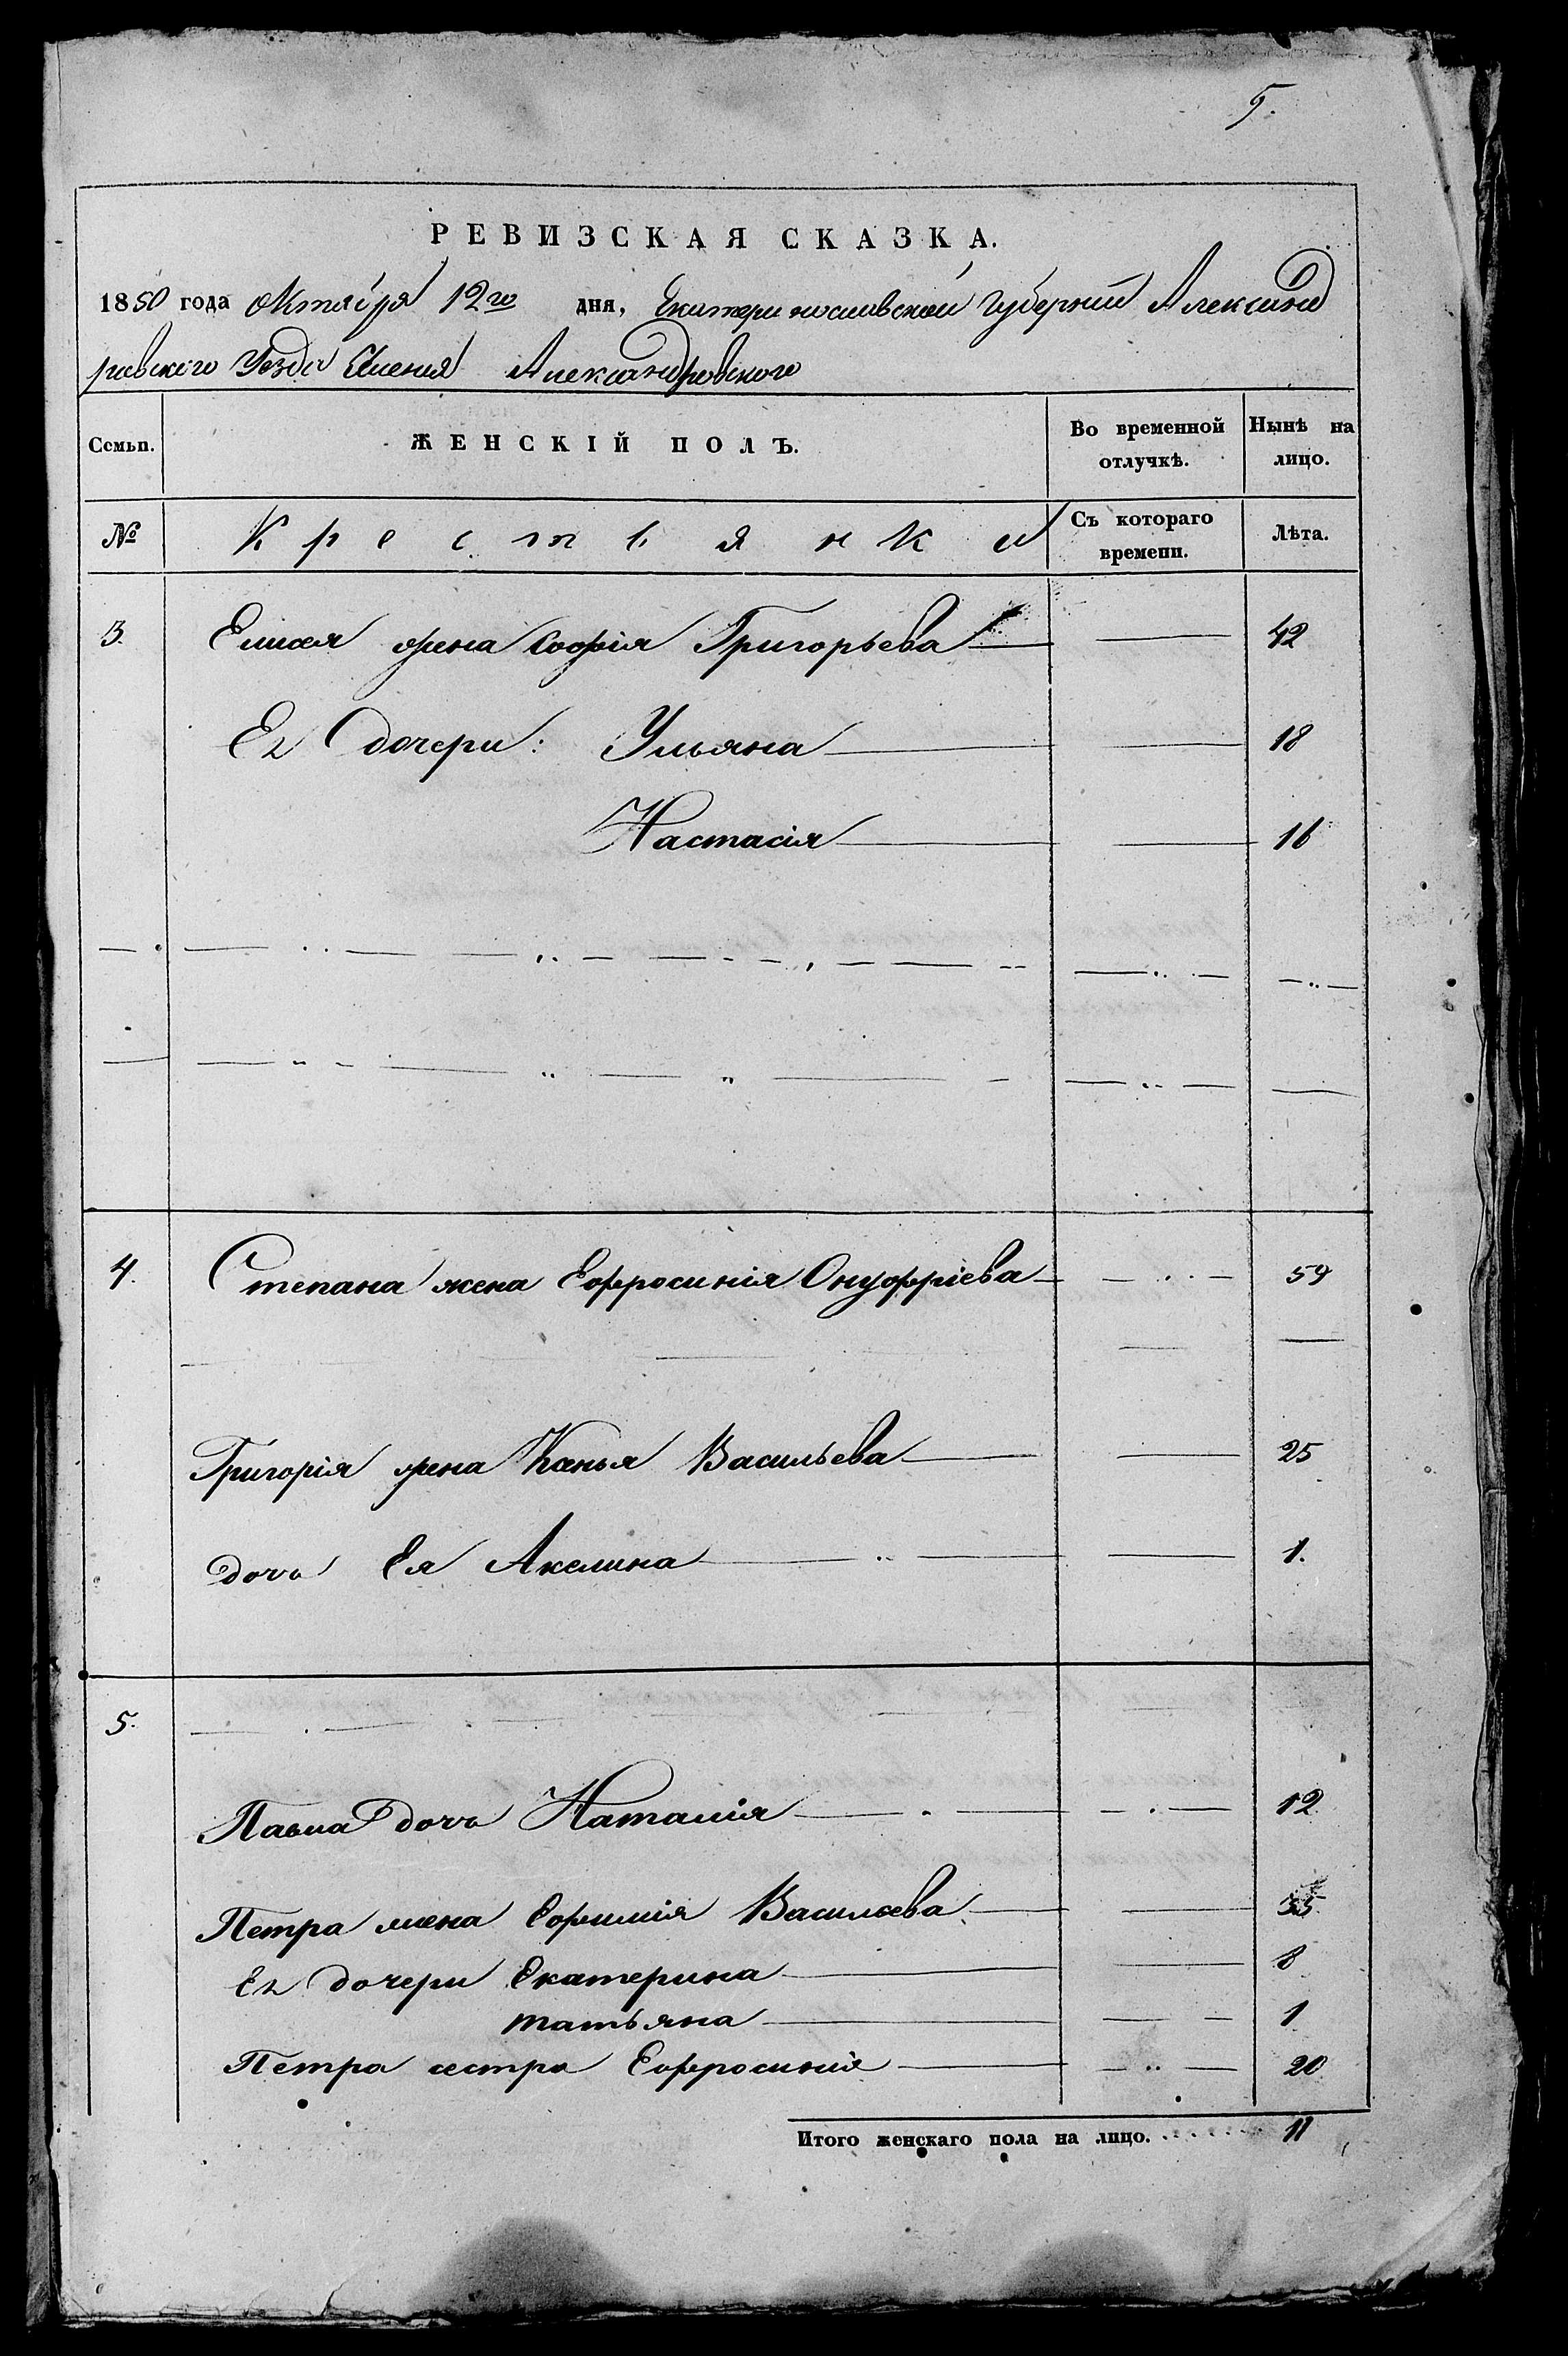 5.
РЕВИЗСКАЯ СКАЗКА.
1850 года Октября 12го дня, Екатеринославской Губернии Александ
ровского Уезда Имения Александровского
Семьи. ЖЕНСКІЙ ПОЛЪ. Во временной отлучкѣ. Нынѣ на лицо.
№ Крестьянки Съ котораго времени. Лѣта.
3. Елисея жена Софія Григорьева 42
Ея дочери: Ульяна 18
Настасія 16
4. Степана жена Ефросинія Онуфріева 59
Григорія жена Васильева 25
дочь Ея Акелина 1.
5.
Павла дочь Наталія 12
Петра жена Ефимія Васильева 35
Ея дочери Екатерина 8
татьяна 1
Петра сестра Ефросинія 20
Итого женскаго пола на лицо. 11